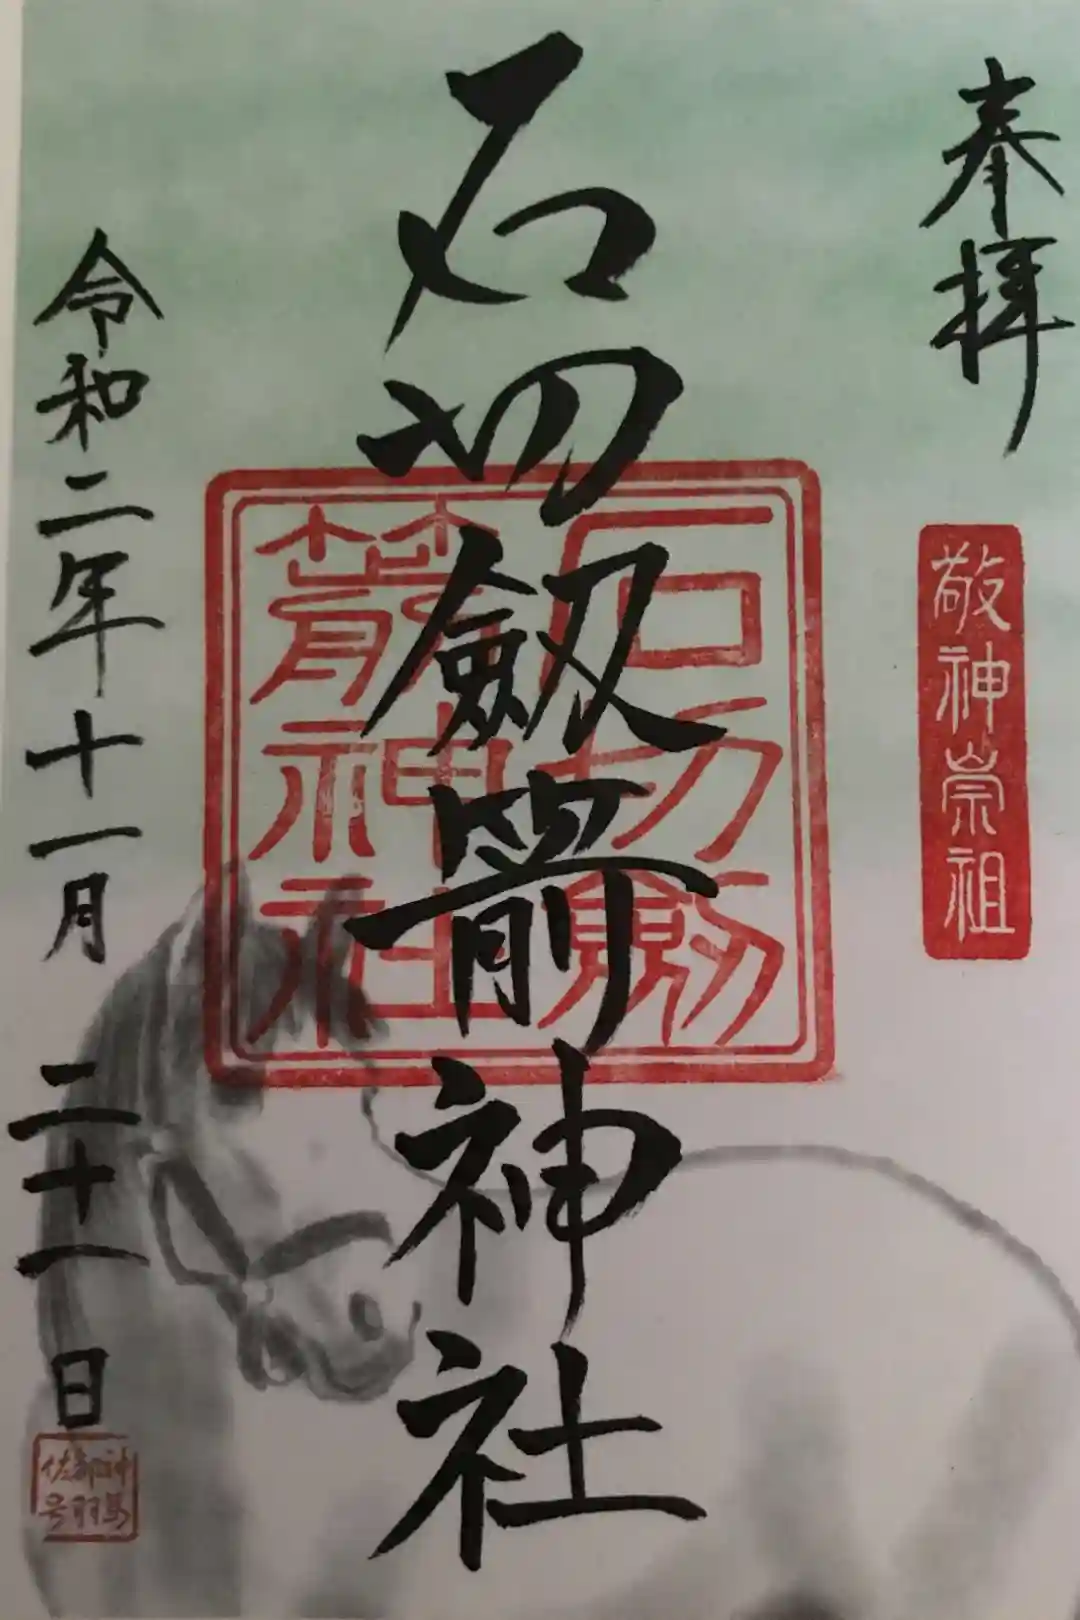 奉拝
敬神崇祖
石切劔箭神社
石切劔
箭神社
令和二年十一月二十一日
神馬
佐号